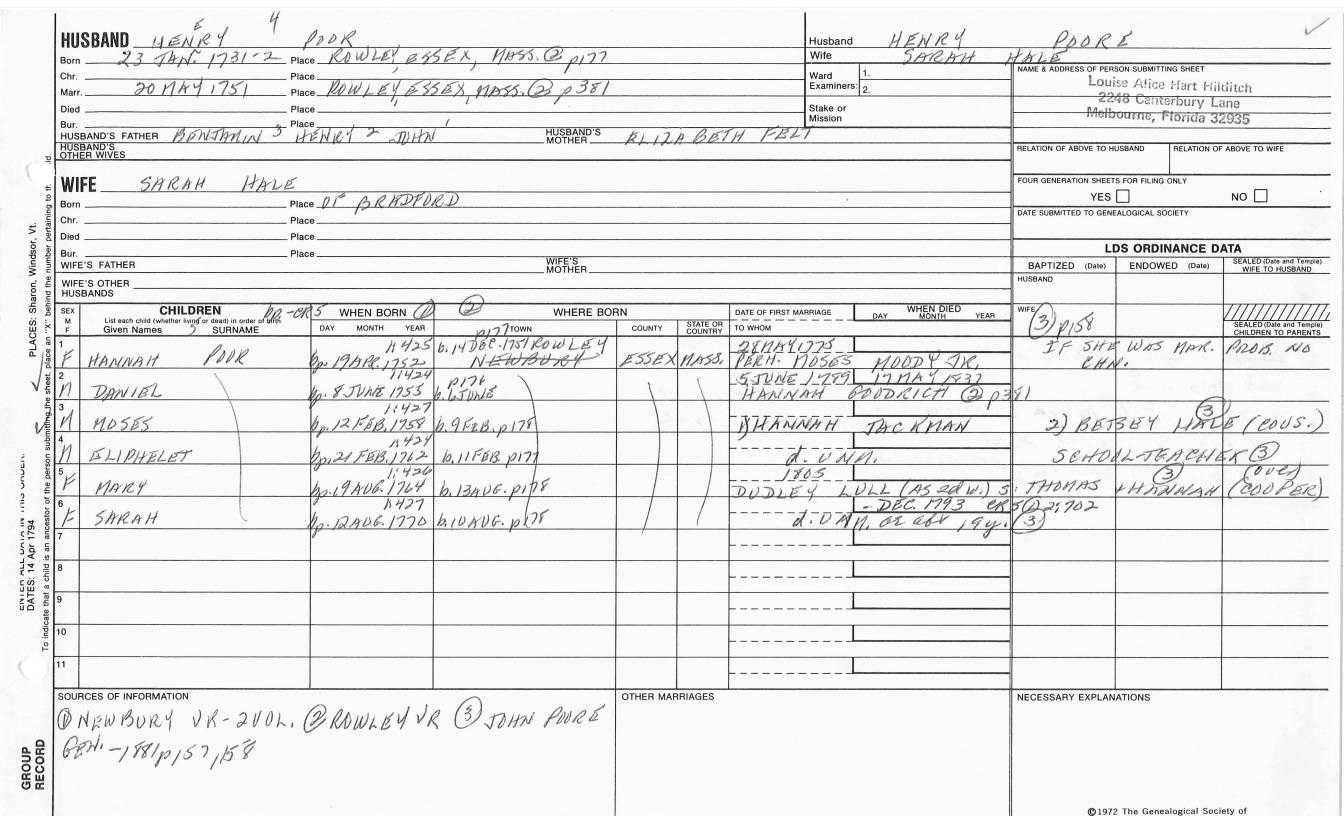 E 4
HUSBAND HENRY POOR
Born 23 JAN. 1731-2 Place ROWLEY, ESSEX, MASS. ② p177
Chr. Place
Marr. 20 MAY 1751 Place ROWLEY, ESSEX, MASS. ② p381
Died Place
Bur. Place
HUSBAND'S FATHER BENJAMIN 3 HENRY 2 JOHN 1 HUSBAND'S MOTHER ELIZABETH FELT
HUSBAND'S OTHER WIVES
Husband HENRY POORE
Wife SARAH HALE
Ward Examiners: 1.
2.
Stake or Mission
NAME & ADDRESS OF PERSON SUBMITTING SHEET
Louise Alice Hart Hilditch
2248 Canterbury Lane
Melbourne, Florida 32935
RELATION OF ABOVE TO HUSBAND RELATION OF ABOVE TO WIFE
FOUR GENERATION SHEETS FOR FILING ONLY
YES NO
DATE SUBMITTED TO GENEALOGICAL SOCIETY
WIFE SARAH HALE
Born Place OF BRADFORD
Chr. Place
Died Place
Bur. Place
WIFE'S FATHER WIFE'S MOTHER
WIFE'S OTHER HUSBANDS
LDS ORDINANCE DATA
BAPTIZED (Date) ENDOWED (Date) SEALED (Date and Temple) WIFE TO HUSBAND
HUSBAND
WIFE ③ p158
SEALED (Date and Temple) CHILDREN TO PARENTS
SEX M F
CHILDREN
List each child (whether living or dead) in order of birth
Given Names 5 SURNAME
bp.-CR5 WHEN BORN ①
DAY MONTH YEAR
② WHERE BORN
p177 TOWN COUNTY STATE OR COUNTRY
DATE OF FIRST MARRIAGE
TO WHOM
WHEN DIED
DAY MONTH YEAR
1 1:425 b. 14 DEC. 1751 ROWLEY 28 MAY 1775 IF SHE WAS MAR. PROB. NO
F HANNAH POOR bp. 19 APR. 1752 NEWBURY ESSEX MASS. PERH. MOSES MOODY JR. CHN.
2 1:424 p176 5 JUNE 1789 17 MAY 1837
M DANIEL bp. 8 JUNE 1755 b. 6 JUNE HANNAH GOODRICH ② p381
3 1:427
M MOSES bp. 12 FEB. 1758 b. 9 FEB. p178 1) HANNAH JACKMAN 2) BETSEY HALE (COUS.) ③
4 1:424 d. UNM.
M ELIPHELET bp. 21 FEB. 1762 b. 11 FEB p177 SCHOOL-TEACHER ③
5 1:426 1805 ③ (over)
F MARY bp. 19 AUG. 1764 b. 13 AUG. p178 DUDLEY LULL (AS 2d w.) s. THOMAS + HANNAH (COOPER)
6 1:427 - DEC. 1793 CR5 ② 2:702
F SARAH bp. 12 AUG. 1770 b. 10 AUG. p178 d. UNM. or abt 19y. ③
7
8
9
10
11
SOURCES OF INFORMATION
① NEWBURY VR-2VOL. ② ROWLEY VR ③ JOHN POORE
GEN. -1881 p157,158
OTHER MARRIAGES
NECESSARY EXPLANATIONS
©1972 The Genealogical Society of
PLACES: Sharon, Windsor, Vt.
ENTER ALL DATA IN THIS ORDER:
DATES: 14 Apr 1794
To indicate that a child is an ancestor of the person submitting the sheet, place an "X" behind the number pertaining to
GROUP RECORD